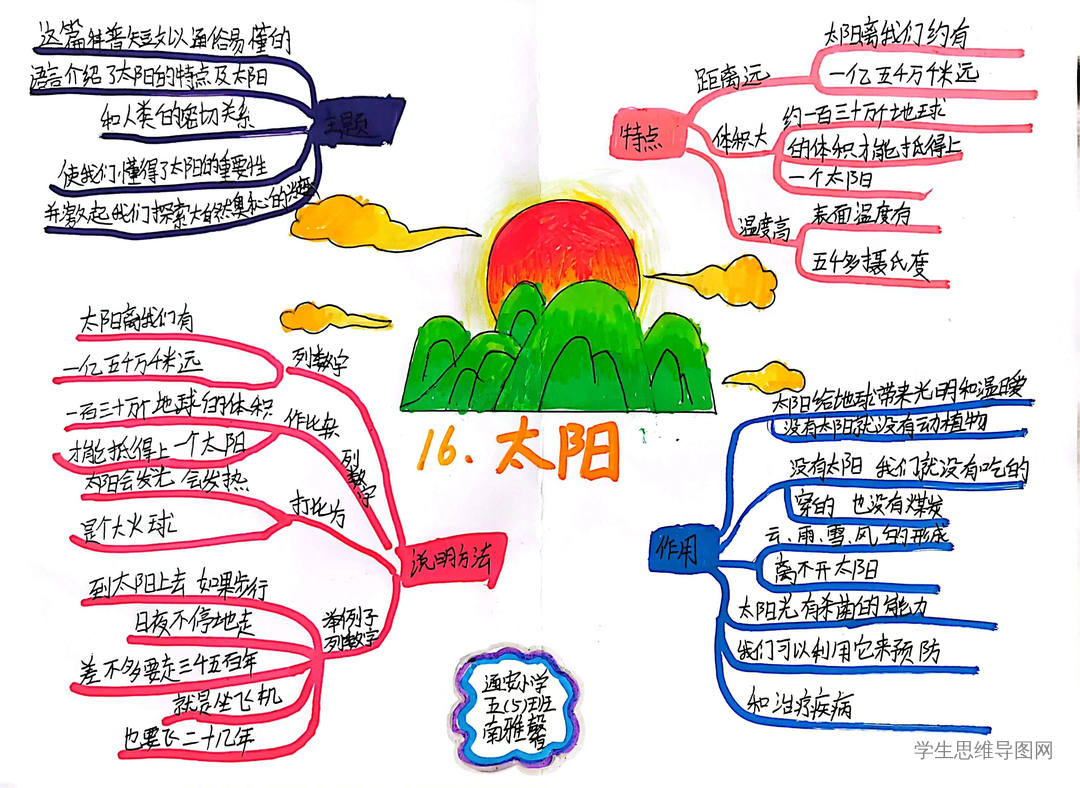 16.太阳
主题
这篇科普短文以通俗易懂的
语言介绍了太阳的特点及太阳
和人类的密切关系
使我们懂得了太阳的重要性
并激起我们探索大自然奥秘的兴趣
特点
距离远
太阳离我们约有
一亿五千万千米远
体积大
约一百三十万个地球
的体积才能抵得上
一个太阳
温度高
表面温度有
五千多摄氏度
说明方法
列数字
太阳离我们有
一亿五千万千米远
作比较
列数字
一百三十万个地球的体积
才能抵得上一个太阳
打比方
太阳会发光 会发热
是个大火球
举例子
列数字
到太阳上去 如果步行
日夜不停地走
差不多要走三千五百年
就是坐飞机
也要飞二十几年
作用
太阳给地球带来光明和温暖
没有太阳就没有动植物
没有太阳 我们就没有吃的
穿的 也没有煤炭
云、雨、雪、风的形成
离不开太阳
太阳光有杀菌的能力
我们可以利用它来预防
和治疗疾病
通安小学
五(5)班
南雅馨
学生思维导图网